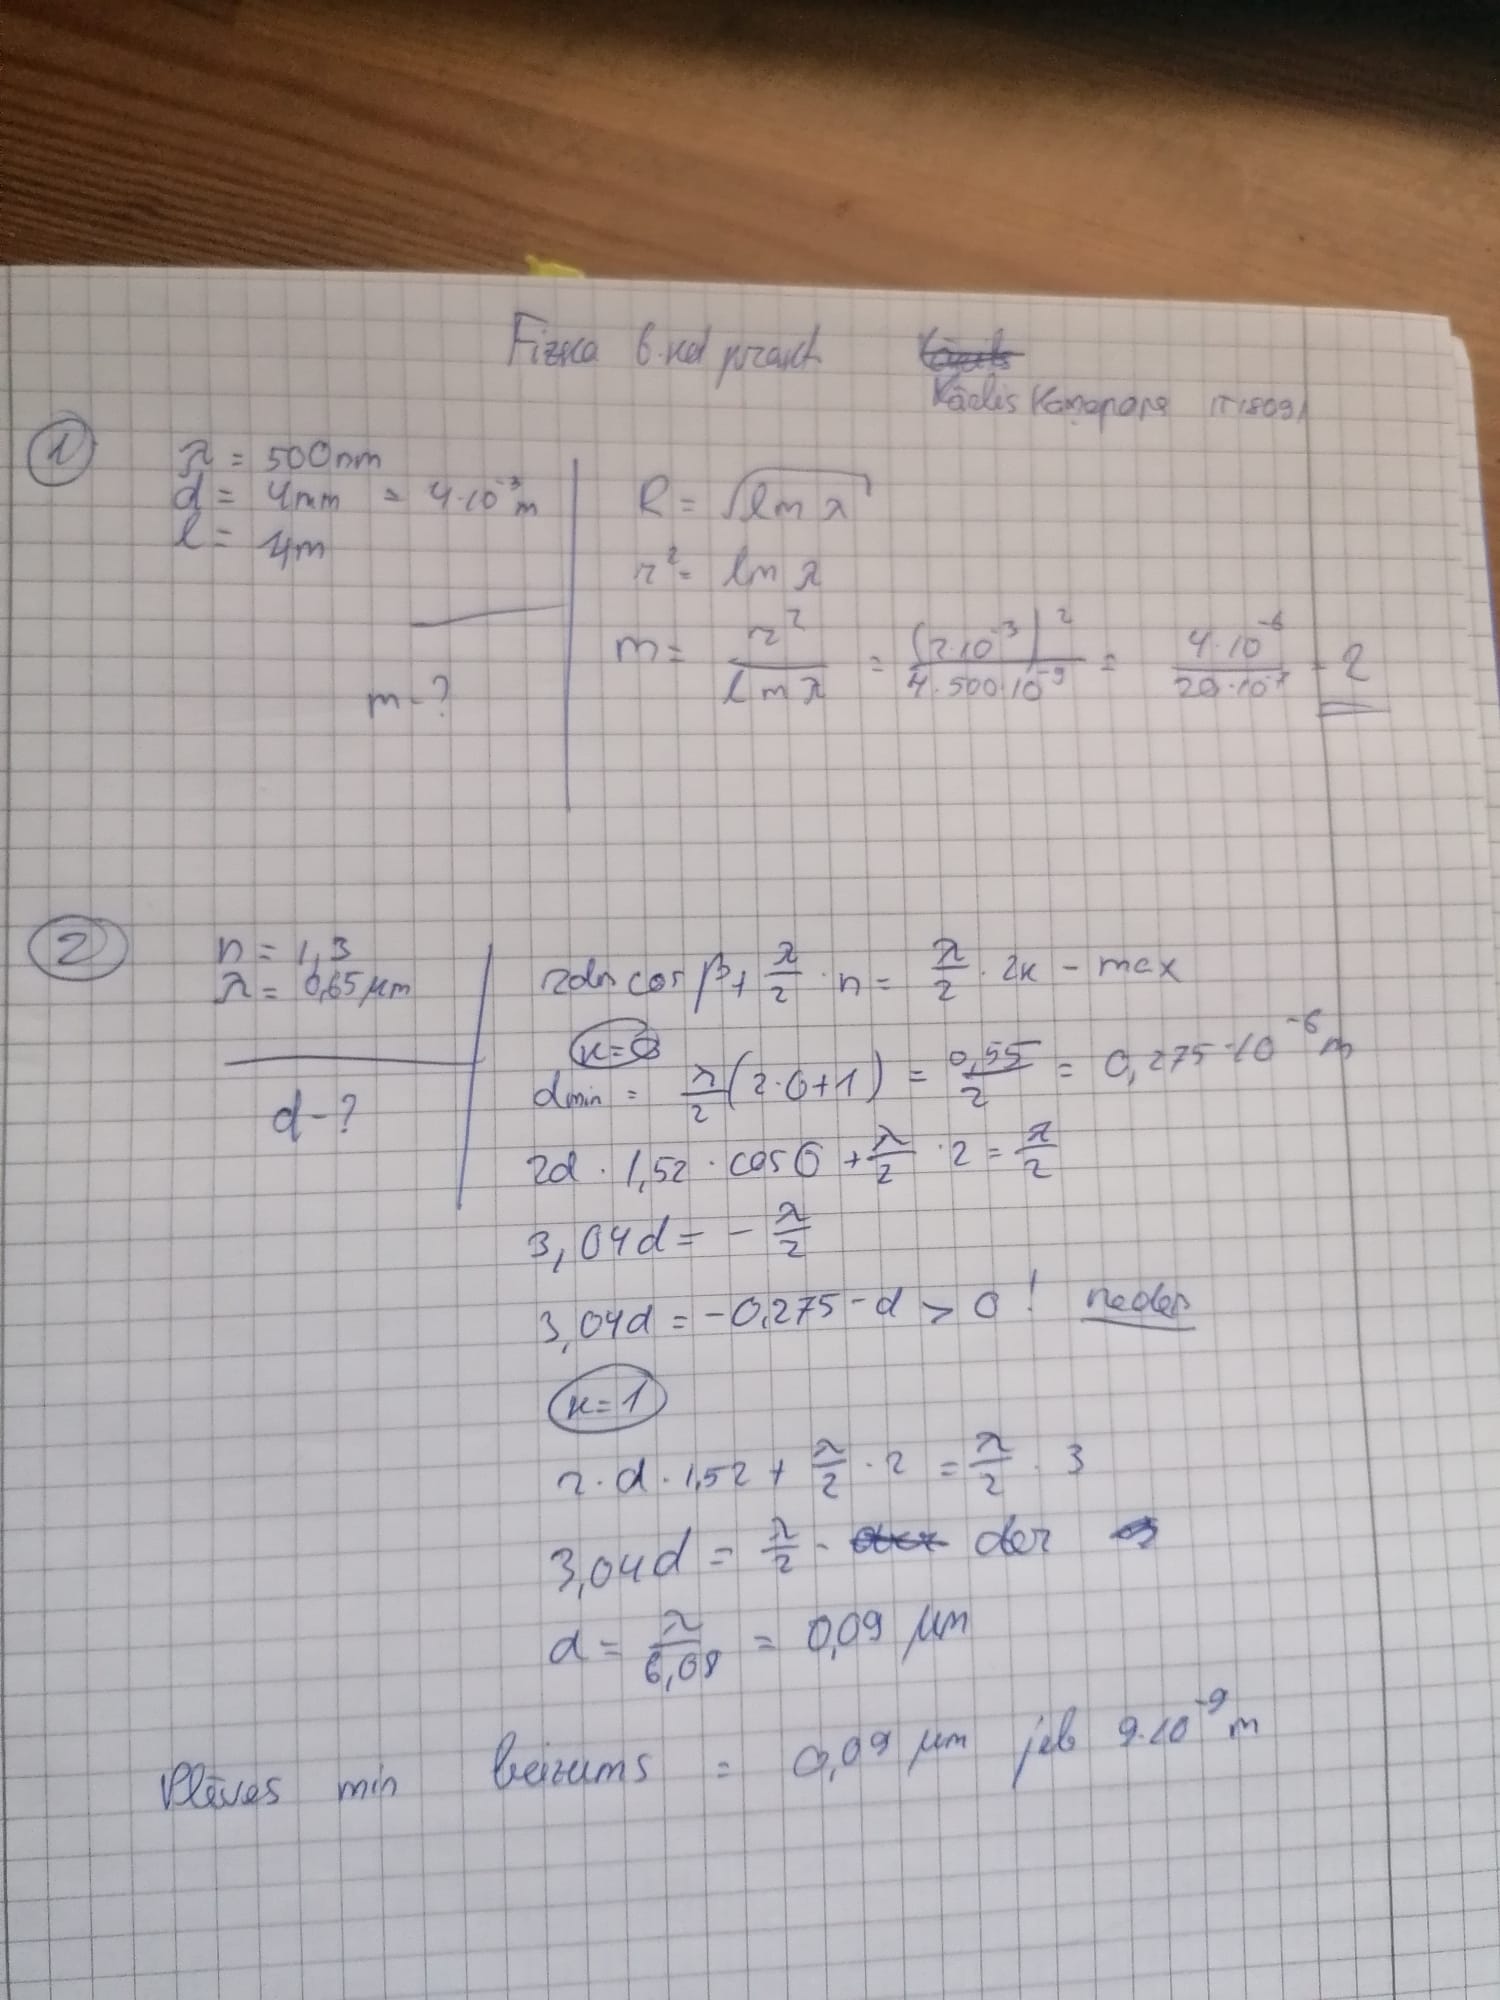 Fizika 6.nod prakt
Kārlis Kaņepars
1
λ = 500nm
d = 4mm = 4·10⁻³m
l = 4m
m - ?
R = √(lmλ)
r² = lmλ
m = r²/(lmλ) = (2·10⁻³)²/(4·500·10⁻⁹) = 4·10⁻⁶/(20·10⁻⁷) = 2
2
n = 1,3
λ = 0,65 μm
d - ?
2dn cos β + λ/2 · n = λ/2 · 2k - max
k=0
dmin = λ/2 (2·0+1) = 0,55/2 = 0,275·10⁻⁶ m
2d · 1,52 · cos 0 + λ/2 · 2 = λ/2
3,04d = - λ/2
3,04d = -0,275 - d > 0! neder
k=1
2·d·1,52 + λ/2 · 2 = λ/2 · 3
3,04d = λ/2 - der
d = λ/6,08 = 0,09 μm
Plēves min biezums = 0,09 μm jeb 9·10⁻⁹ m